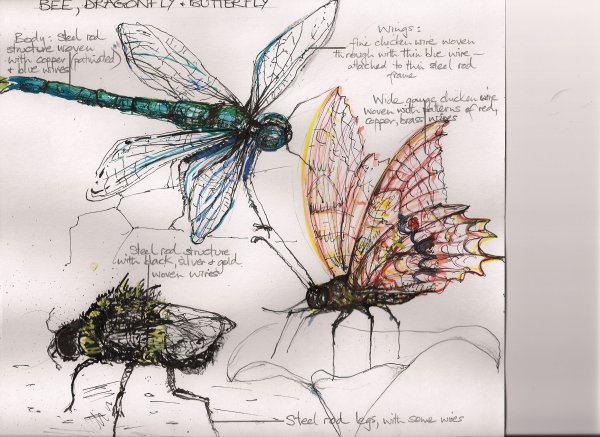 BEE, DRAGONFLY + BUTTERFLY
Body: Steel rod
structure woven
with copper (patinated)
+ blue wires
Wings:
fine chicken wire woven
through with thin blue wire –
attached to thin steel rod
frame
Wide gauge chicken wire
woven with patterns of red,
copper, brass wires
Steel rod structure
with black, silver + gold
woven wires
Steel rod legs, with some wires